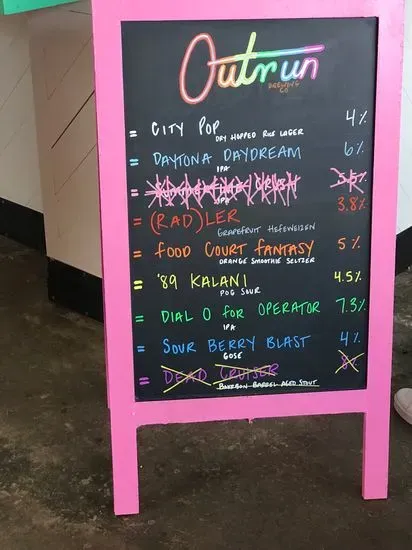 Outrun
BREWING
CO
= CITY POP 4%
DRY HOPPED RICE LAGER
= DAYTONA DAYDREAM 6%
IPA
= CRUSH 5.5%
IPA
= (RAD)LER 3.8%
GRAPEFRUIT HEFEWEIZEN
= FOOD COURT FANTASY 5%
ORANGE SMOOTHIE SELTZER
= '89 KALANI 4.5%
POG SOUR
= DIAL O FOR OPERATOR 7.3%
IPA
= SOUR BERRY BLAST 4%
GOSE
= DEAD CRUISER
BOURBON BARREL AGED STOUT